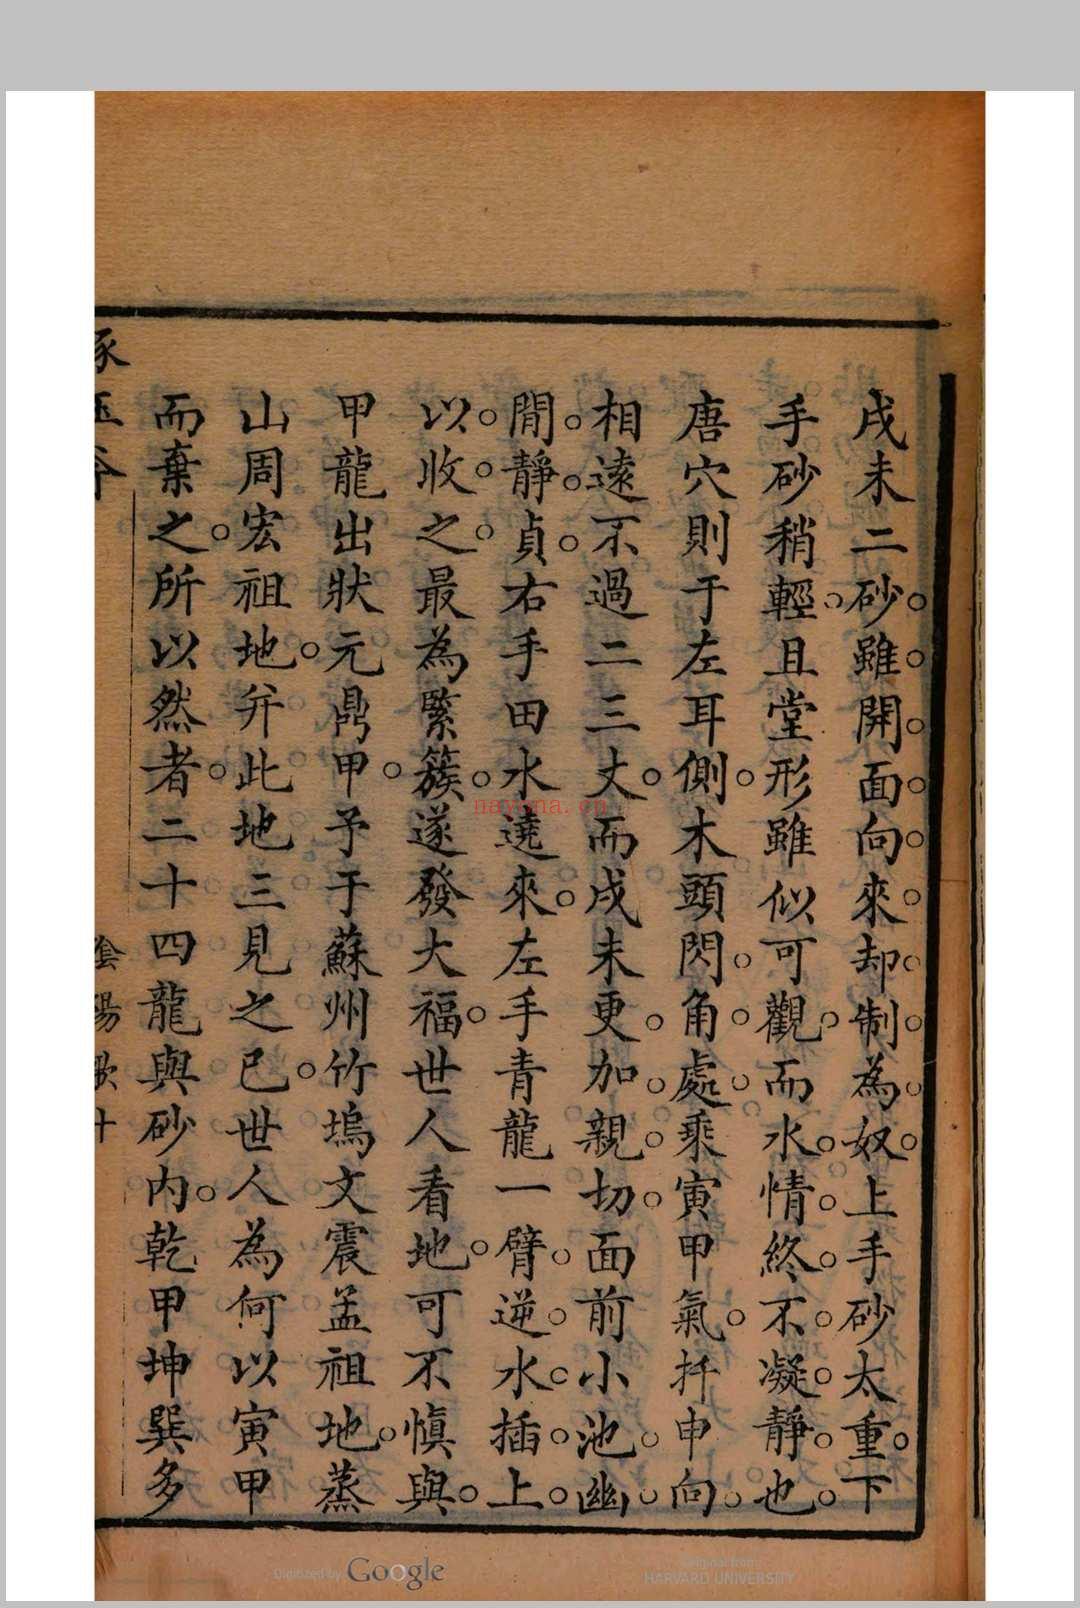 戌未二砂雖開面向來却制為奴上手砂太重下
手砂稍輕且堂形雖似可觀而水情終不凝靜也
唐穴則于左耳側木頭閃角處乘寅甲氣扦申向
相遠不過二三丈而戌未更加親切面前小池幽
閒靜貞右手田水遶來左手青龍一臂逆水插上
以收之最為緊簇遂發大福世人看地可不慎與
甲龍出狀元鼎甲予于蘇州竹塢文震孟祖地蒸
山周宏祖地并此地三見之已世人為何以寅甲
而棄之所以然者二十四龍與砂內乾甲坤巽多
琢玉斧
陰陽歌十
nayona.cn
Digitized by Google
Original from
HARVARD UNIVERSITY